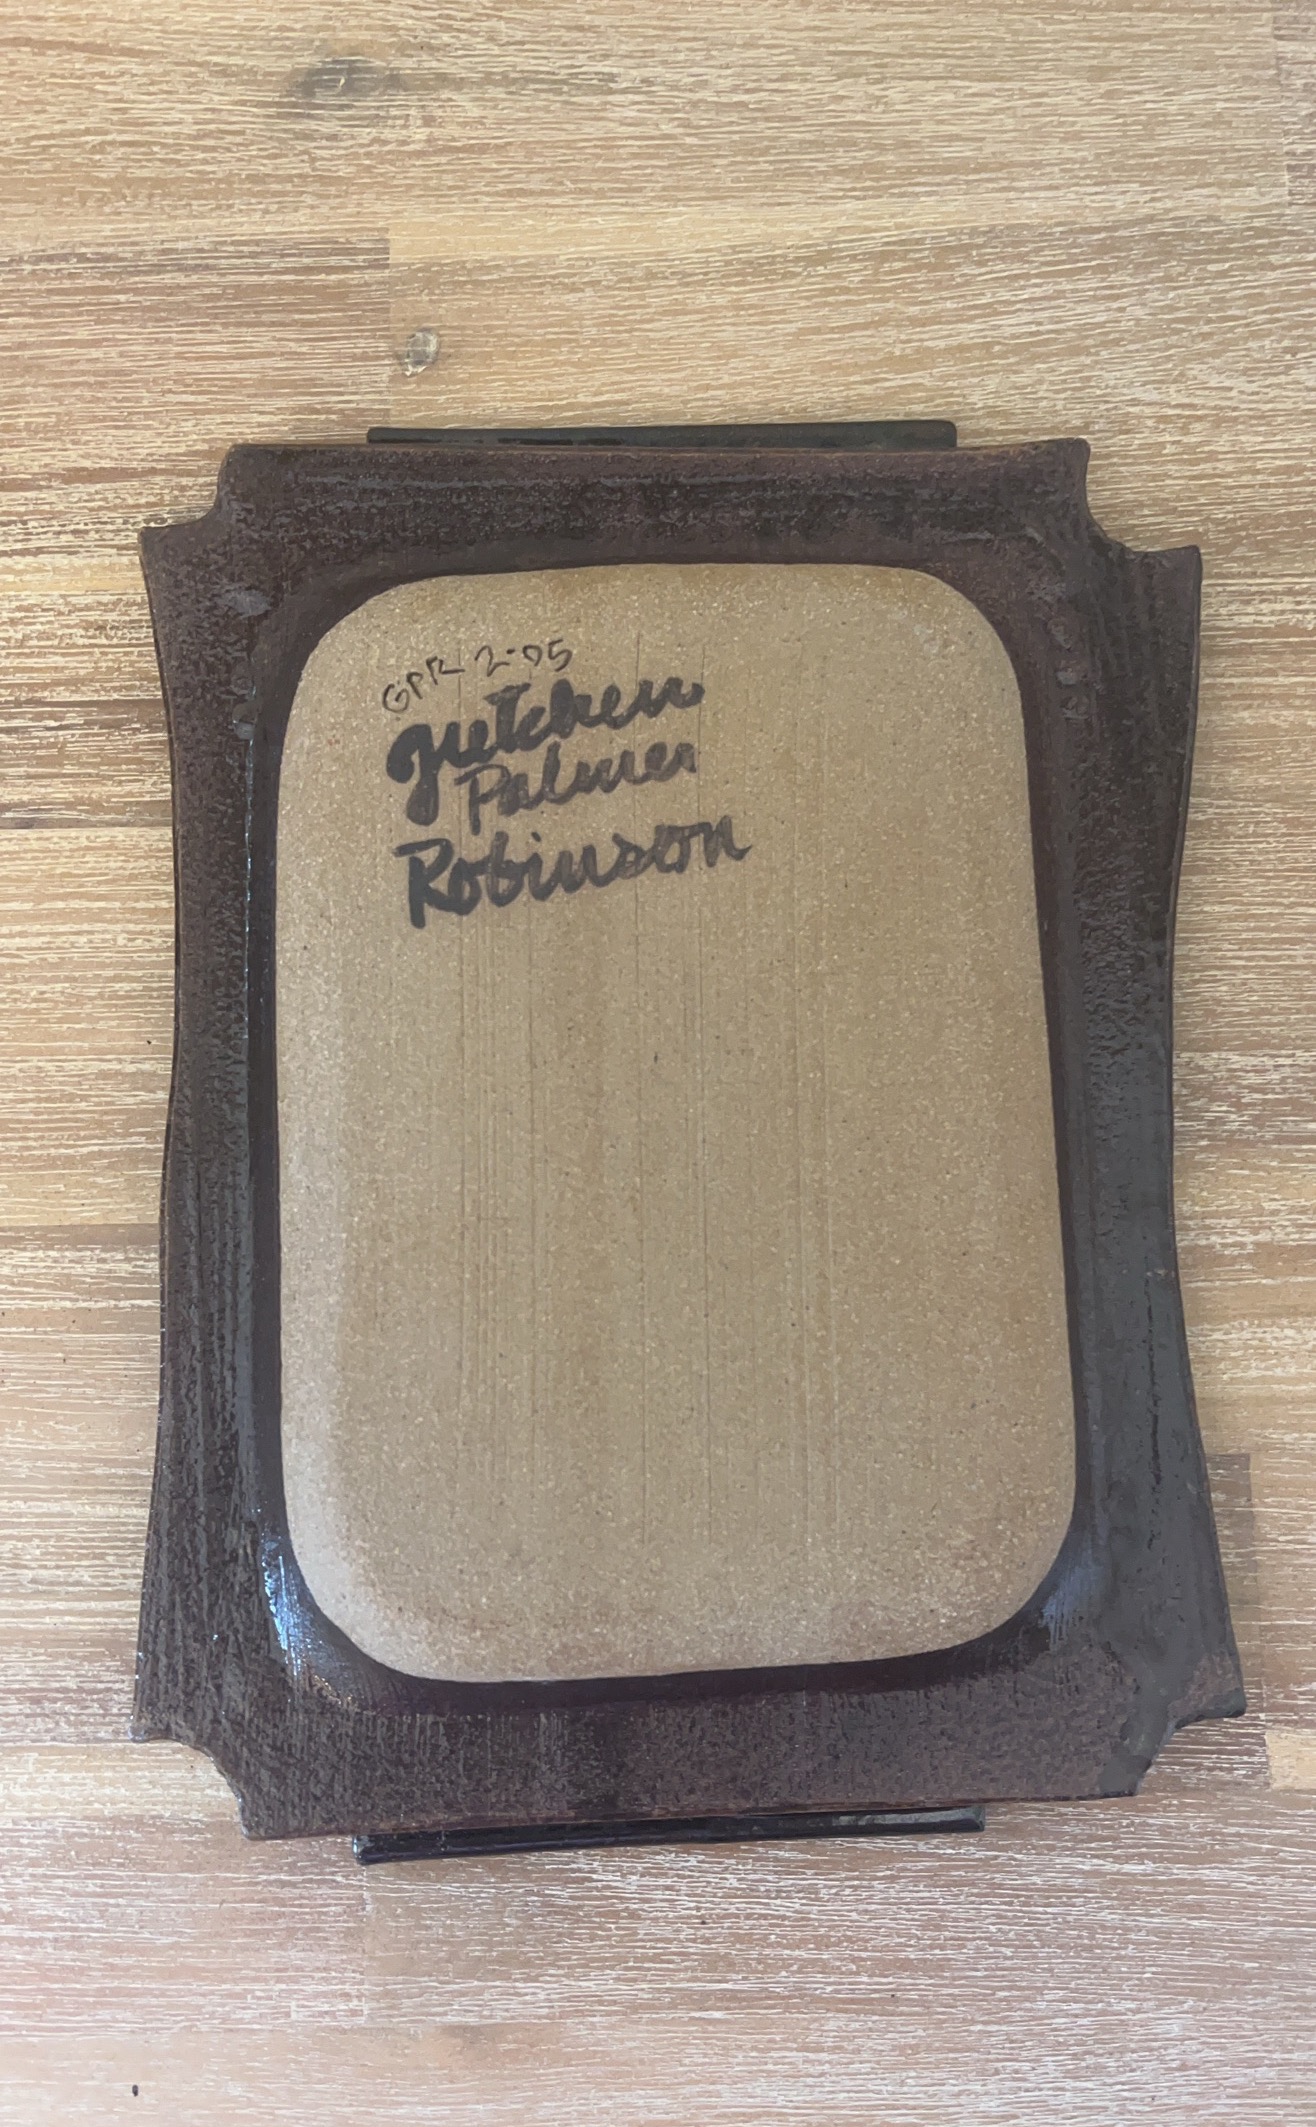 GPR 2-05
Gretchen
Palmer
Robinson